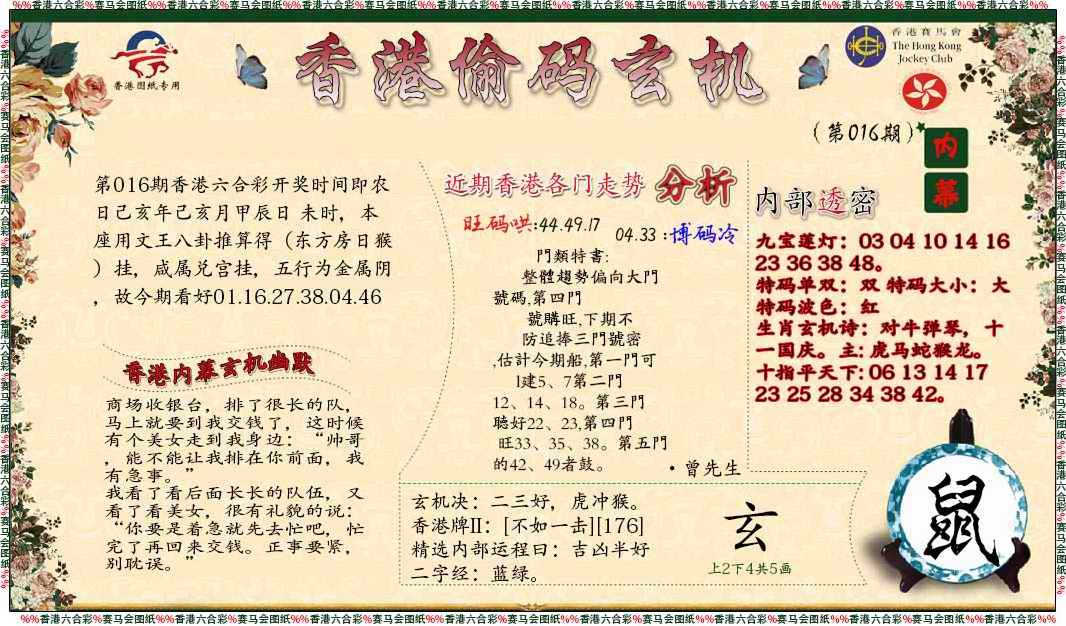 %%香港六合彩%赛马会图纸%%香港六合彩%赛马会图纸%%香港六合彩%赛马会图纸%%香港六合彩%赛马会图纸%%香港六合彩%赛马会图纸%%香港六合彩%赛马会图纸%%香港六合彩%%
香港图纸专用
香港偷码玄机
香港賽馬會
The Hong Kong
Jockey Club
(第016期)
内幕
第016期香港六合彩开奖时间即农
日己亥年己亥月甲辰日 未时，本
座用文王八卦推算得（东方房日猴
）挂，咸属兑宫挂，五行为金属阴
，故今期看好01.16.27.38.04.46
香港内幕玄机幽默
商场收银台，排了很长的队，
马上就要到我交钱了，这时候
有个美女走到我身边：“帅哥
，能不能让我排在你前面，我
有急事。”
我看了看后面长长的队伍，又
看了看美女，很有礼貌的说：
“你要是着急就先去忙吧，忙
完了再回来交钱。正事要紧，
别耽误。”
近期香港各门走势 分析
旺码哄:44.49.17
04.33 :博码冷
門類特書:
整體趨勢偏向大門
號碼,第四門
號購旺,下期不
防追捧三門號密
,估計今期船,第一門可
1建5、7第二門
12、14、18。第三門
聽好22、23,第四門
旺33、35、38。第五門
的42、49者鼓。
·曾先生
内部透密
九宝莲灯：03 04 10 14 16
23 36 38 48。
特码单双：双 特码大小：大
特码波色：红
生肖玄机诗：对牛弹琴，十
一国庆。主: 虎马蛇猴龙。
十指平天下: 06 13 14 17
23 25 28 34 38 42。
玄机决：二三好，虎冲猴。
香港牌II：[不如一击][176]
精选内部运程曰：吉凶半好
二字经：蓝绿。
玄
上2下4共5画
鼠
%%香港六合彩%赛马会图纸%%香港六合彩%赛马会图纸%%香港六合彩%赛马会图纸%%香港六合彩%赛马会图纸%%香港六合彩%赛马会图纸%%香港六合彩%赛马会图纸%%香港六合彩%%